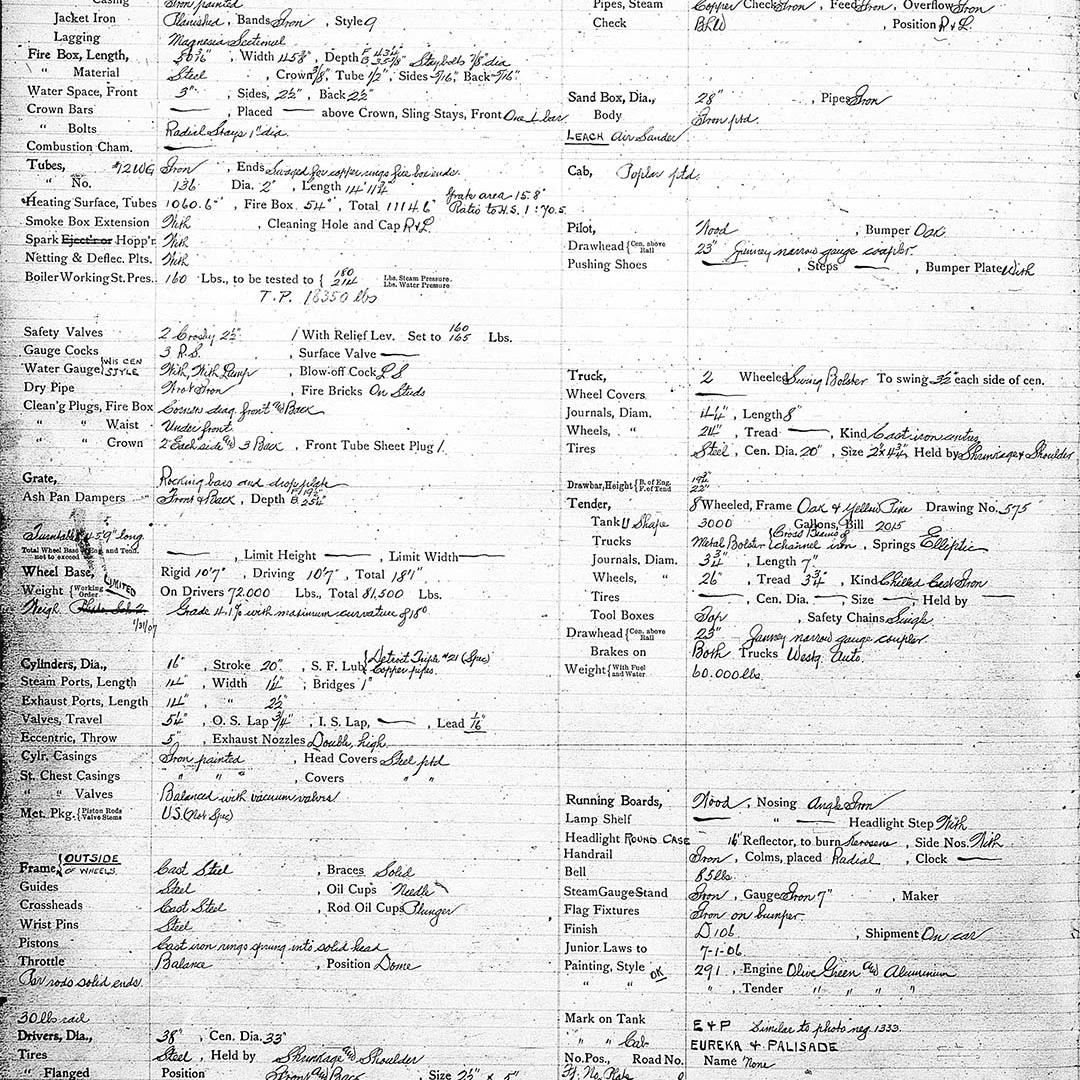 Casing Iron painted
Jacket Iron Planished, Bands Iron, Style 9
Lagging Magnesia Sectional
Fire Box, Length, 50 3/16", Width 45 3/8", Depth Staybolts 7/8" dia
" Material Steel, Crown 3/8", Tube 1/2", Sides 5/16" Back 5/16"
Water Space, Front 3", Sides, 2½", Back 2½"
Crown Bars —, Placed — above Crown, Sling Stays, Front One ⊥ bar
" Bolts Radial Stays 1" dia.
Combustion Cham. —
Tubes, #12 WG Iron, Ends Swaged for copper rings fire box ends.
" No. 136 Dia. 2", Length 14' 11¾"
Heating Surface, Tubes 1060.6, Fire Box 54, Total 1114.6 Grate area 15.8 Ratio to H.S. 1:70.5
Smoke Box Extension With, Cleaning Hole and Cap R & L.
Spark Eject'r or Hopp'r With
Netting & Deflec. Plts. With
Boiler Working St. Pres. 160 Lbs., to be tested to { 180 Lbs. Steam Pressure. 214 Lbs. Water Pressure
T.P. 18350 lbs
Safety Valves 2 Crosby 2½" 1 With Relief Lev. Set to 160 165 Lbs.
Gauge Cocks 3 R.S., Surface Valve —
Water Gauge { WIS CEN STYLE With, With Lamp, Blow-off Cock L S
Dry Pipe Wrot Iron, Fire Bricks On Studs
Clean'g Plugs, Fire Box Corners diag. front & Back
" " Waist Under front
" " Crown 2 Each side & 3 Back, Front Tube Sheet Plug 1
Grate, Rocking bars and drop plate
Ash Pan Dampers Front & Back, Depth
Turntable 45' 9" long
Total Wheel Base of Eng. and Tend. not to exceed —, Limit Height —, Limit Width —
Wheel Base, Rigid 10'7", Driving 10'7", Total 18'1"
Weight { Working Order LIMITED On Drivers 72,000 Lbs., Total 81,500 Lbs.
Weigh Grade 4.1% with maximum curvature of 18°
1/31/07
Cylinders, Dia., 16", Stroke 20", S. F. Lub { Detroit Triple #21 (Spec) Copper pipes.
Steam Ports, Length 14", Width 1¼" Bridges 1"
Exhaust Ports, Length 14", " 2½"
Valves, Travel 5¼", O. S. Lap ¾", I. S. Lap, —, Lead 1/16"
Eccentric, Throw 5", Exhaust Nozzles Double, high.
Cylr. Casings Iron painted, Head Covers Steel ptd
St. Chest Casings " ", Covers " "
" " Valves Balanced with vacuum valves
Met. Pkg. { Piston Rods Valve Stems U.S. (Not Spec)
Frame, { OUTSIDE OF WHEELS. Cast Steel, Braces Solid
Guides Steel, Oil Cups Needle
Crossheads Cast Steel, Rod Oil Cups Plunger
Wrist Pins Steel
Pistons Cast iron rings sprung into solid head
Throttle Balance, Position Dome
Par rods solid ends.
30 lbs rail
Drivers, Dia., 38", Cen. Dia. 33"
Tires Steel, Held by Shrinkage & Shoulder
" Flanged Position Front & Back, Size 2½" x 5"
Pipes, Steam Copper Check Iron, Feed Iron, Overflow Iron
Check BLW, Position R & L.
Sand Box, Dia., 28", Pipes Iron
Body Iron ptd.
LEACH Air Sander
Cab, Poplar ptd.
Pilot, Wood, Bumper Oak
Drawhead { Cen. above Rail 23" Janney narrow gauge coupler.
Pushing Shoes —, Steps —, Bumper Plate With
Truck, 2 Wheeled Swing Bolster To swing 3½" each side of cen.
Wheel Covers —
Journals, Diam. 4¼", Length 8"
Wheels, " 24", Tread —, Kind Cast iron centres
Tires Steel, Cen. Dia. 20", Size 2" x 4¾", Held by Shrinkage & Shoulder
Drawbar, Height { B. of Eng. F. of Tend 19¾" 22"
Tender, 8 Wheeled, Frame Oak & Yellow Pine Drawing No. 575
Tank U Shape 3000 Gallons, Bill 2015
Trucks Metal Bolster { Cross Beams of channel iron, Springs Elliptic
Journals, Diam. 3¾", Length 7"
Wheels, " 26", Tread 3¾", Kind Chilled Cast Iron
Tires —, Cen. Dia. —, Size —, Held by —
Tool Boxes Top, Safety Chains Single
Drawhead { Cen. above Rail 23" Janney narrow gauge coupler.
Brakes on Both Trucks Westg. Auto.
Weight { With Fuel and Water 60,000 lbs.
Running Boards, Wood, Nosing Angle Iron
Lamp Shelf — " — Headlight Step With
Headlight ROUND CASE 16" Reflector, to burn Kerosene, Side Nos. With
Handrail Iron, Colms, placed Radial, Clock —
Bell 85 lbs
Steam Gauge Stand Iron, Gauge Iron 7", Maker
Flag Fixtures Iron on bumper.
Finish D 106, Shipment On car
Junior Laws to 7-1-06.
Painting, Style OK 291, Engine Olive Green & Aluminium
" " ", Tender " " " "
Mark on Tank E & P Similar to photo neg. 1333.
" " Cab EUREKA & PALISADE
No. Pos., Road No. Name None